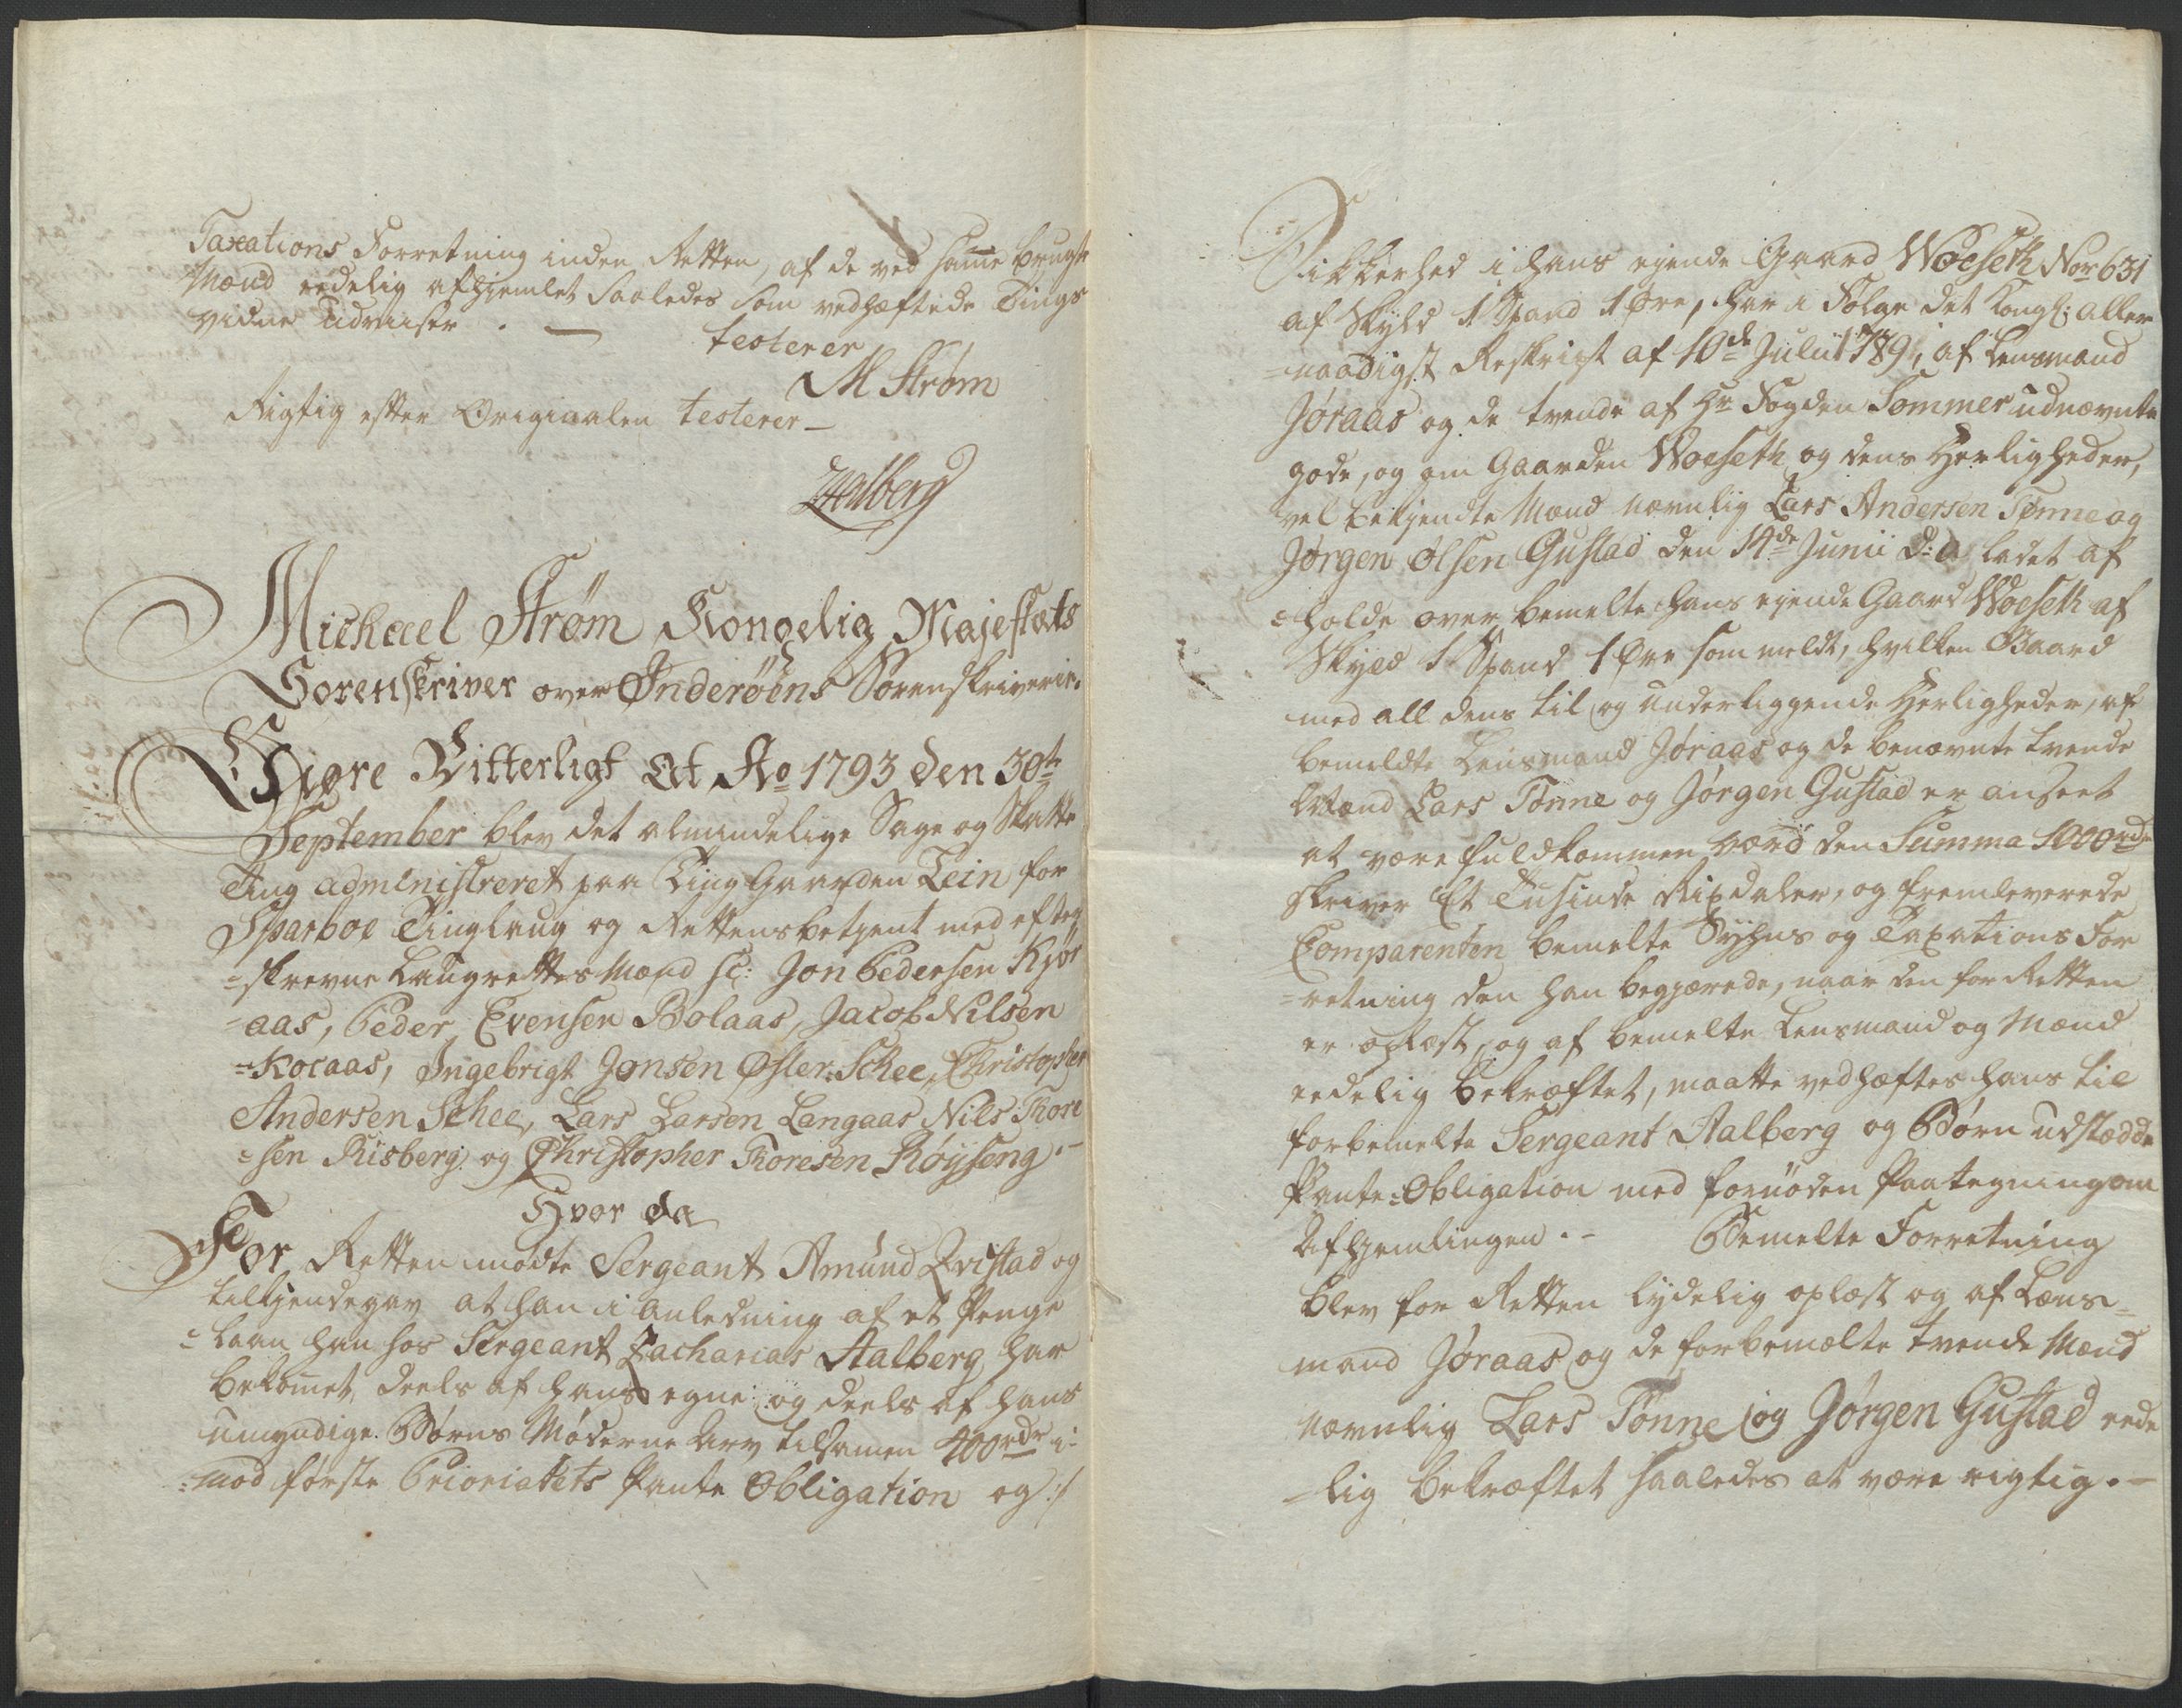 Taxations Forretning inden Retten, af de ved samme brugte
Mænd eedelig afhjemlet saaledes som vedhæftede Tings
vidne udviiser . —
testerer
M Strøm
Rigtig efter Originalen testerer —
ZAalberg
Michael Strøm Kongelig Majestæts
Sorenskriver over Inderøens Sorenskriverie.
Giøre Vitterligt At Ao 1793 den 30te
September blev det almindelige Sage og Skatte
Ting administreret paa Ting Gaarden Lein for
Sparboe Tinglaug og Rettens betjent med efter
=skrevne Laugrettes Mænd sc: Jon Pedersen Kjør
=aas, Peder Evensen Bolaas, Jacob Nilsen
=Koraas, Ingebrigt Jonsen Øster-Schee, Christopher
Andersen Schee, Lars Larsen Langaas Nils Thore
=sen Risberg og Christopher Toresen Røyseng .-
Hvor da
For Retten mødte Sergeant Amund Qvistad og
tilkjendegav at han i Anledning af et Penge
=Laan han hos Sergeant Zacharias Aalberg har
bekommet, deels af hans egne og deels af hans
umyndige Børns Møderne Arv tilsamen 400rdr i-
=mod første Prioriatets Pante Obligation og :/
Sikkerhed i hans ejende Gaard Woeseth Nor 631
af Skyld 1 Spand 1 Øre, har i Følge det Kongl: aller
=naadigst Reskript af 10de Julii 1789, af Lensmand
Jøraas og de tvende af Hr Fogden Sommer udnævnte
gode, og om Gaarden Woeseth og dens Herligheder,
vel bekjendte Mænd nævnlig Lars Andersen Tønne og
Jørgen Olsen Gustad den 14de Junii d: a ladet af
=holde over bemelte hans ejende Gaard Woeseth af
Skyld 1 Spand 1 Øre som meldt, hvilken Gaard
med all dens til og underliggende Herligheder, af
bemeldte Lensmand Jøraas og de benævnte tvende
Mænd Lars Tønne og Jørgen Gustad er anseet
at være fuldkommen værd den Summa 1000rdr
skriver Et Tusinde Rixdaler, og fremleverede
Comparenten bemelte Syhns og Taxations For
=retning den han begjærede, naar den for Retten
er oplæst, og af bemelte Lensmand og Mænd
eedelig bekræftet, maatte vedhæftes hans til
forbemelte Sergeant Aalberg og Børn udstædde
Pante=Obligation med fornøden Paategning om
Afhjemlingen .- Bemelte Forretning
blev for Retten lydelig oplæst og af Læns=
mand Jøraas og de forbemelte tvende Mænd
nævnlig Lars Tønne og Jørgen Gustad eede
=lig bekræftet saaledes at være rigtig .—